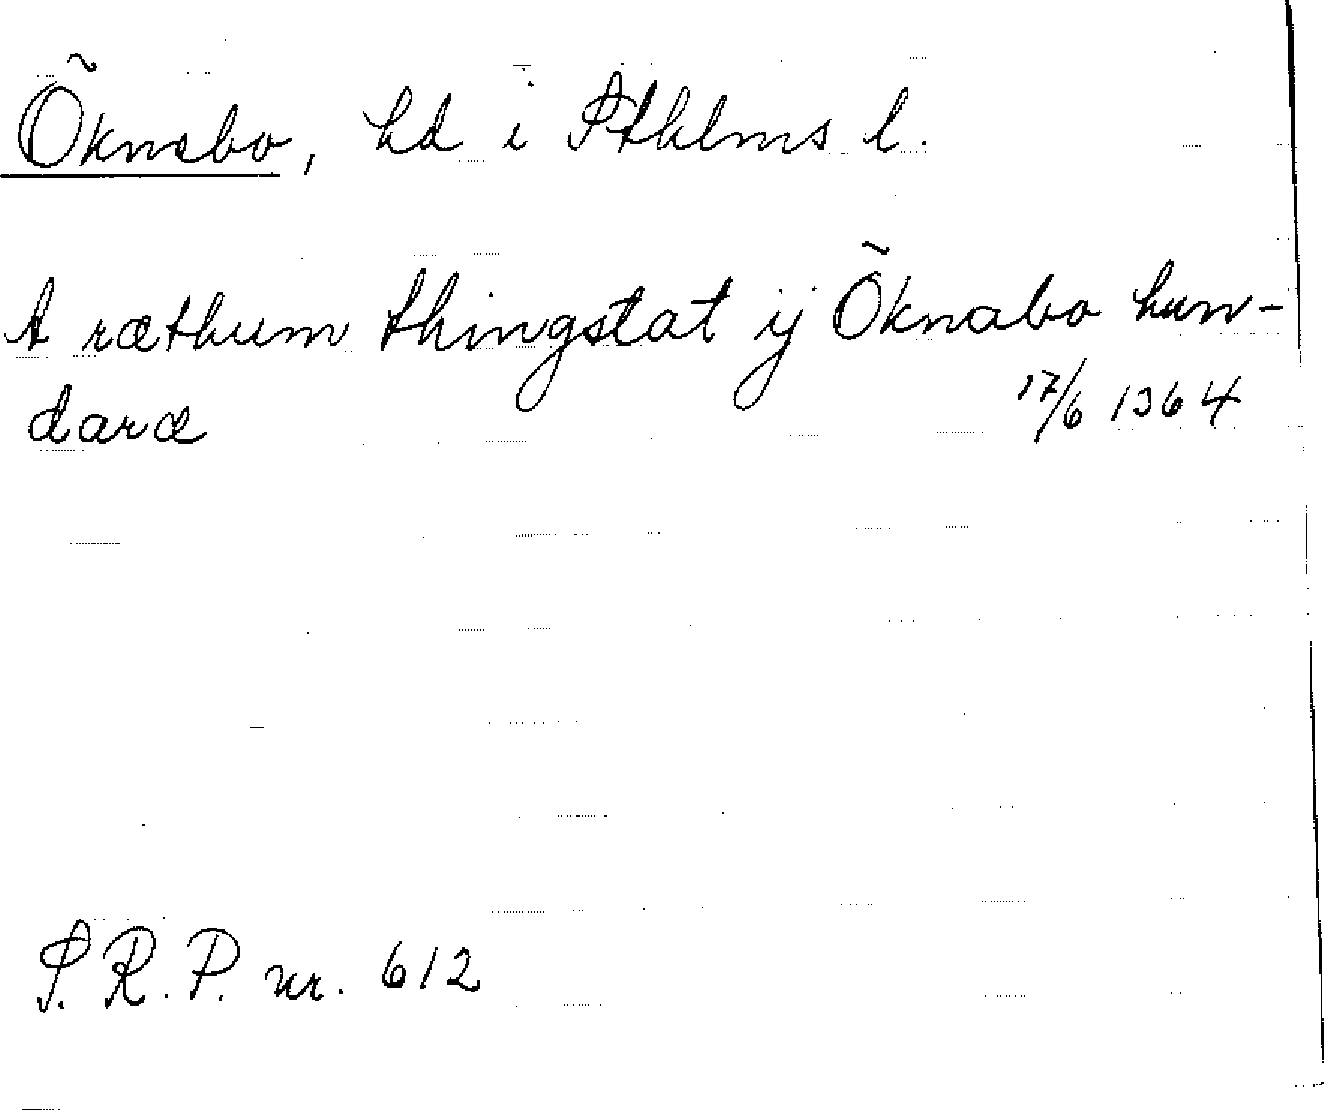 Õknebo, hd i Sthlms l.
A ræthum thingstat ij Õknabo hun-
daræ 17/6 1364
S.R.P. nr. 612